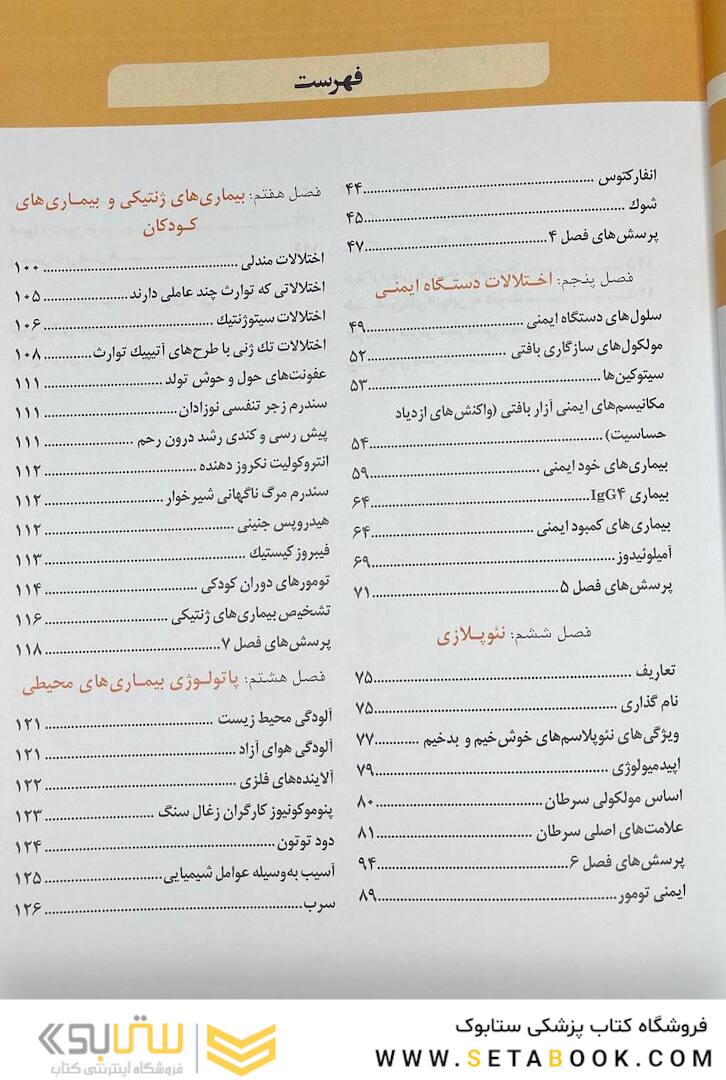 فهرست
انفارکتوس ........ ۴۴
شوك ........ ۴۵
پرسش‌های فصل ۴ ........ ۴۷
فصل پنجم: اختلالات دستگاه ایمنی
سلول‌های دستگاه ایمنی ........ ۴۹
مولکول‌های سازگاری بافتی ........ ۵۲
سیتوکین‌ها ........ ۵۳
مکانیسم‌های ایمنی آزار بافتی (واکنش‌های ازدیاد
حساسیت) ........ ۵۴
بیماری‌های خود ایمنی ........ ۵۹
بیماری IgG۴ ........ ۶۴
بیماری‌های کمبود ایمنی ........ ۶۴
آمیلوئیدوز ........ ۶۹
پرسش‌های فصل ۵ ........ ۷۱
فصل ششم: نئوپلازی
تعاریف ........ ۷۵
نام گذاری ........ ۷۵
ویژگی‌های نئوپلاسم‌های خوش‌خیم و بدخیم ........ ۷۷
اپیدمیولوژی ........ ۷۹
اساس مولکولی سرطان ........ ۸۰
علامت‌های اصلی سرطان ........ ۸۱
پرسش‌های فصل ۶ ........ ۹۴
ایمنی تومور ........ ۸۹
فصل هفتم: بیماری‌های ژنتیکی و بیماری‌های
کودکان
اختلالات مندلی ........ ۱۰۰
اختلالاتی که توارث چند عاملی دارند ........ ۱۰۵
اختلالات سیتوژنتیك ........ ۱۰۶
اختلالات تك ژنی با طرح‌های آتیپیك توارث ........ ۱۰۸
عفونت‌های حول و حوش تولد ........ ۱۱۱
سندرم زجر تنفسی نوزادان ........ ۱۱۱
پیش رسی و کندی رشد درون رحم ........ ۱۱۱
انتروکولیت نکروز دهنده ........ ۱۱۲
سندرم مرگ ناگهانی شیرخوار ........ ۱۱۲
هیدروپس جنینی ........ ۱۱۲
فیبروز کیستیك ........ ۱۱۳
تومورهای دوران کودکی ........ ۱۱۴
تشخیص بیماری‌های ژنتیکی ........ ۱۱۶
پرسش‌های فصل ۷ ........ ۱۱۸
فصل هشتم: پاتولوژی بیماری‌های محیطی
آلودگی محیط زیست ........ ۱۲۱
آلودگی هوای آزاد ........ ۱۲۱
آلاینده‌های فلزی ........ ۱۲۲
پنوموکونیوز کارگران زغال سنگ ........ ۱۲۳
دود توتون ........ ۱۲۴
آسیب به‌وسیله عوامل شیمیایی ........ ۱۲۵
سرب ........ ۱۲۶
فروشگاه کتاب پزشکی ستابوک
WWW.SETABOOK.COM
ستابوک
فروشگاه اینترنتی کتاب